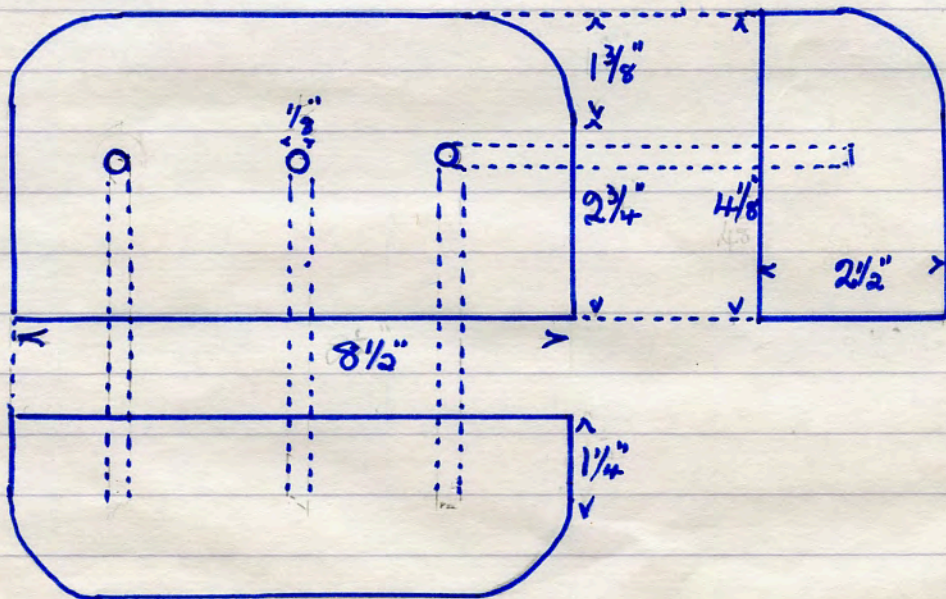 1 3/8"
1/8"
2 3/4"
4 1/8"
2 1/2"
8 1/2"
1 1/4"